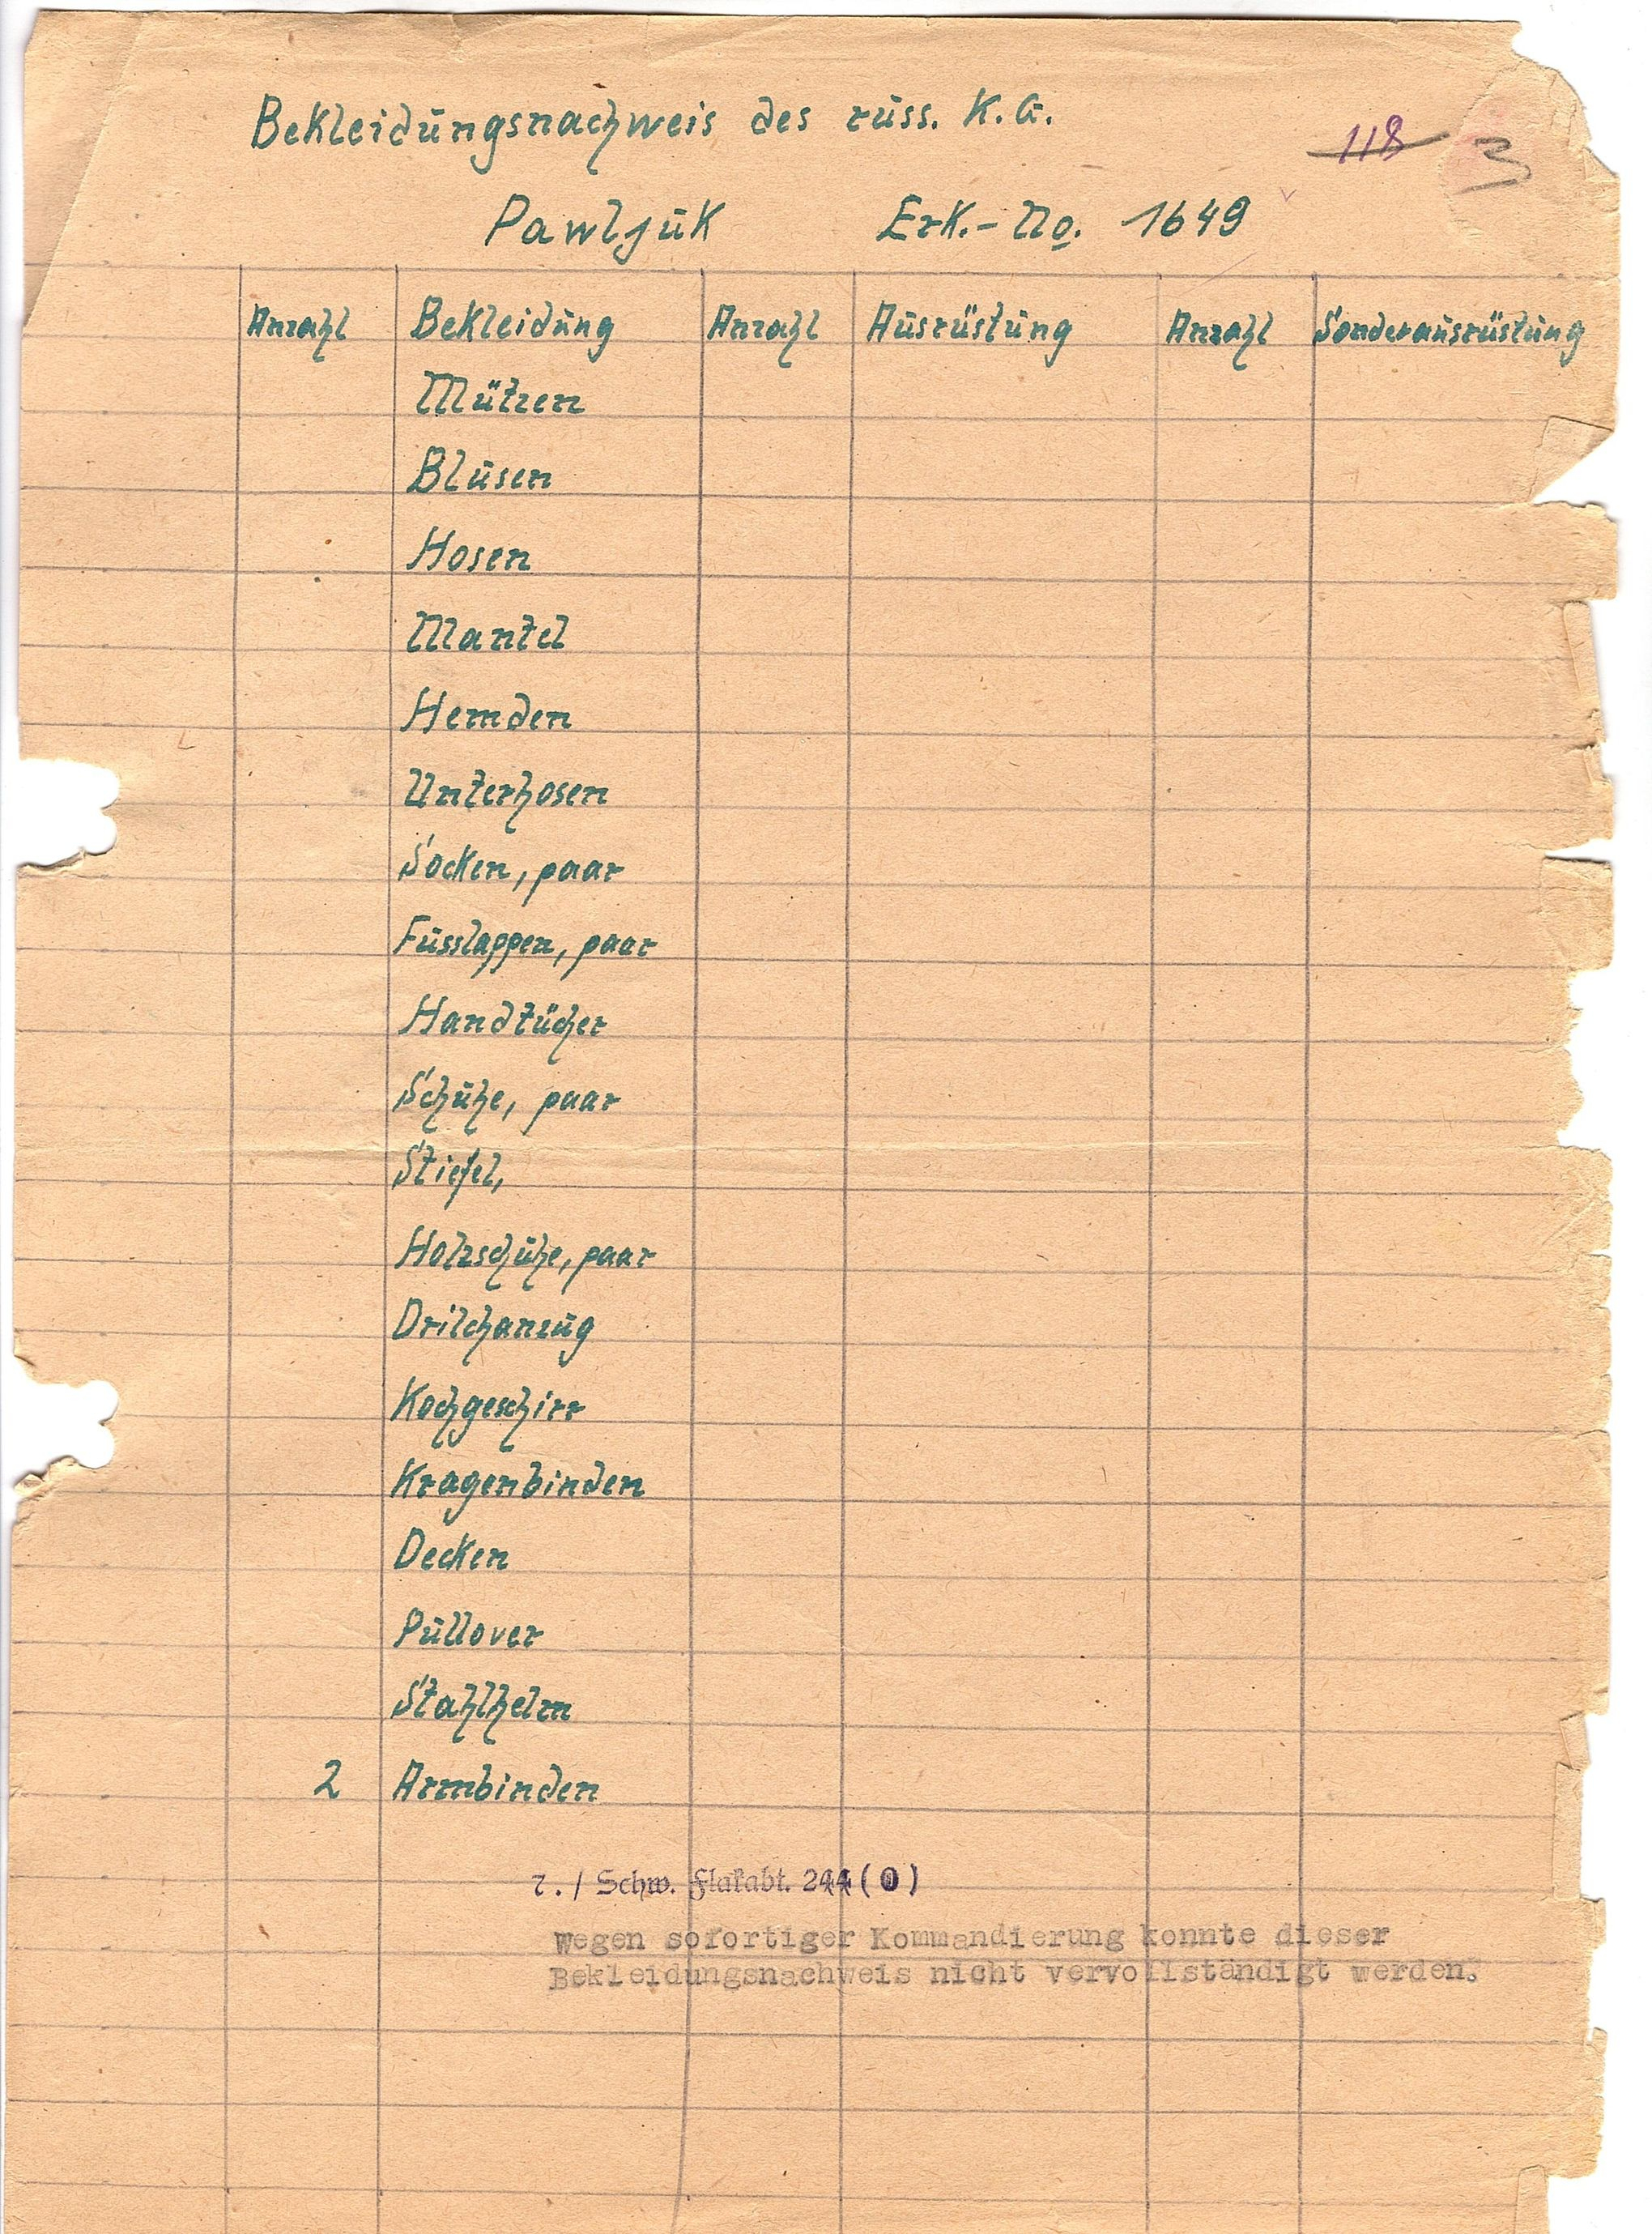 Bekleidungsnachweis des russ. K.G.
118 3
Pawljuk Erk.-No. 1649
Anzahl Bekleidung Anzahl Ausrüstung Anzahl Sonderausrüstung
Mützen
Blusen
Hosen
Mantel
Hemden
Unterhosen
Socken, paar
Fusslappen, paar
Handtücher
Schuhe, paar
Stiefel,
Holzschuhe, paar
Drilchanzug
Kochgeschirr
Kragenbinden
Decken
Pullover
Stahlhelm
2 Armbinden
Schw. Flakabt. 244 (O)
Wegen sofortiger Kommandierung konnte dieser
Bekleidungsnachweis nicht vervollständigt werden.